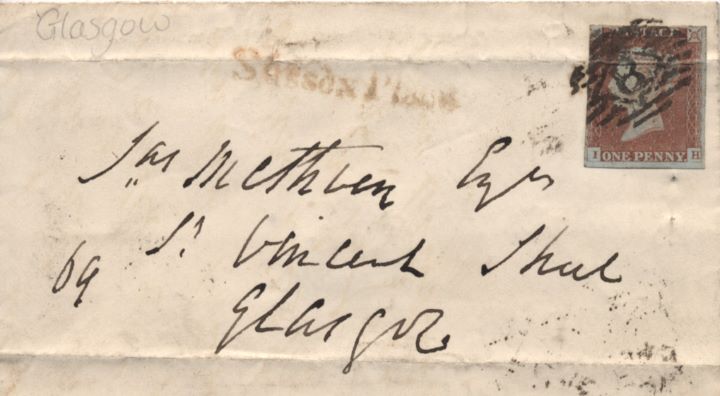 Glasgow
Sussex Place
POSTAGE
8
I ONE PENNY H
Jas Methven Esqre
69 St Vincent Street
Glasgow